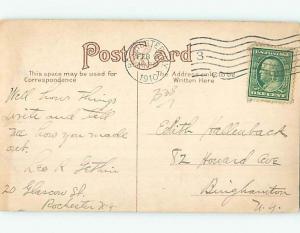 Post Card
This space may be used for
Correspondence
Address only to be
Written Here
FEB
1910
3
Well hows things
write and tell
me how you made
out.
Leo R
20 Glasgow St.
Rochester N.Y.
Edith Hallenback
82 Howard Ave
Binghamton
N.Y.